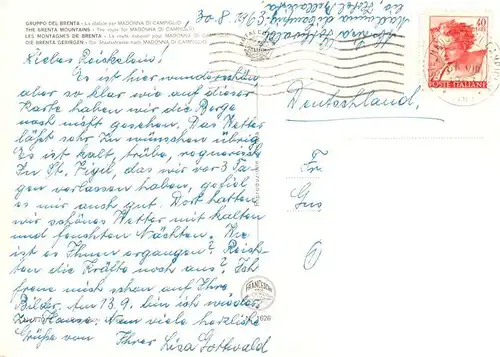 GRUPPO DEL BRENTA - La statale per MADONNA DI CAMPIGLIO
THE BRENTA MOUNTAINS - The route for MADONNA DI CAMPIGLIO
LES MONTAGNES DE BRENTA - La route national pour MADONNA DI CAMPIGLIO
DIE BRENTA GEBIRGEN - Die Staatstrasse nach MADONNA DI CAMPIGLIO
30. 8.
Madonna di Campiglio
40
POSTE ITALIANE
Es ist hier wunderschön,
aber so klar wie auf dieser
Karte haben wir die Berge
noch nicht gesehen. Das Wetter
läßt sehr zu wünschen übrig
Es ist kalt, trübe, regnerisch
In St. Vigil, das wir vor 3 Ta-
gen verlassen haben, gefiel
es mir auch gut. Dort hatten
wir schönes Wetter mit kalten
und feuchten Nächten. Wie
ist es Ihnen ergangen? Reich-
ten die Kräfte noch aus? Ich
freue mich schon auf Ihre
Bilder. Am 13.9. bin ich wieder
zu Hause. Nun viele herzliche
Grüße von Ihrer Lisa Gottwald
Deutschland.
Fr
Gus
1626